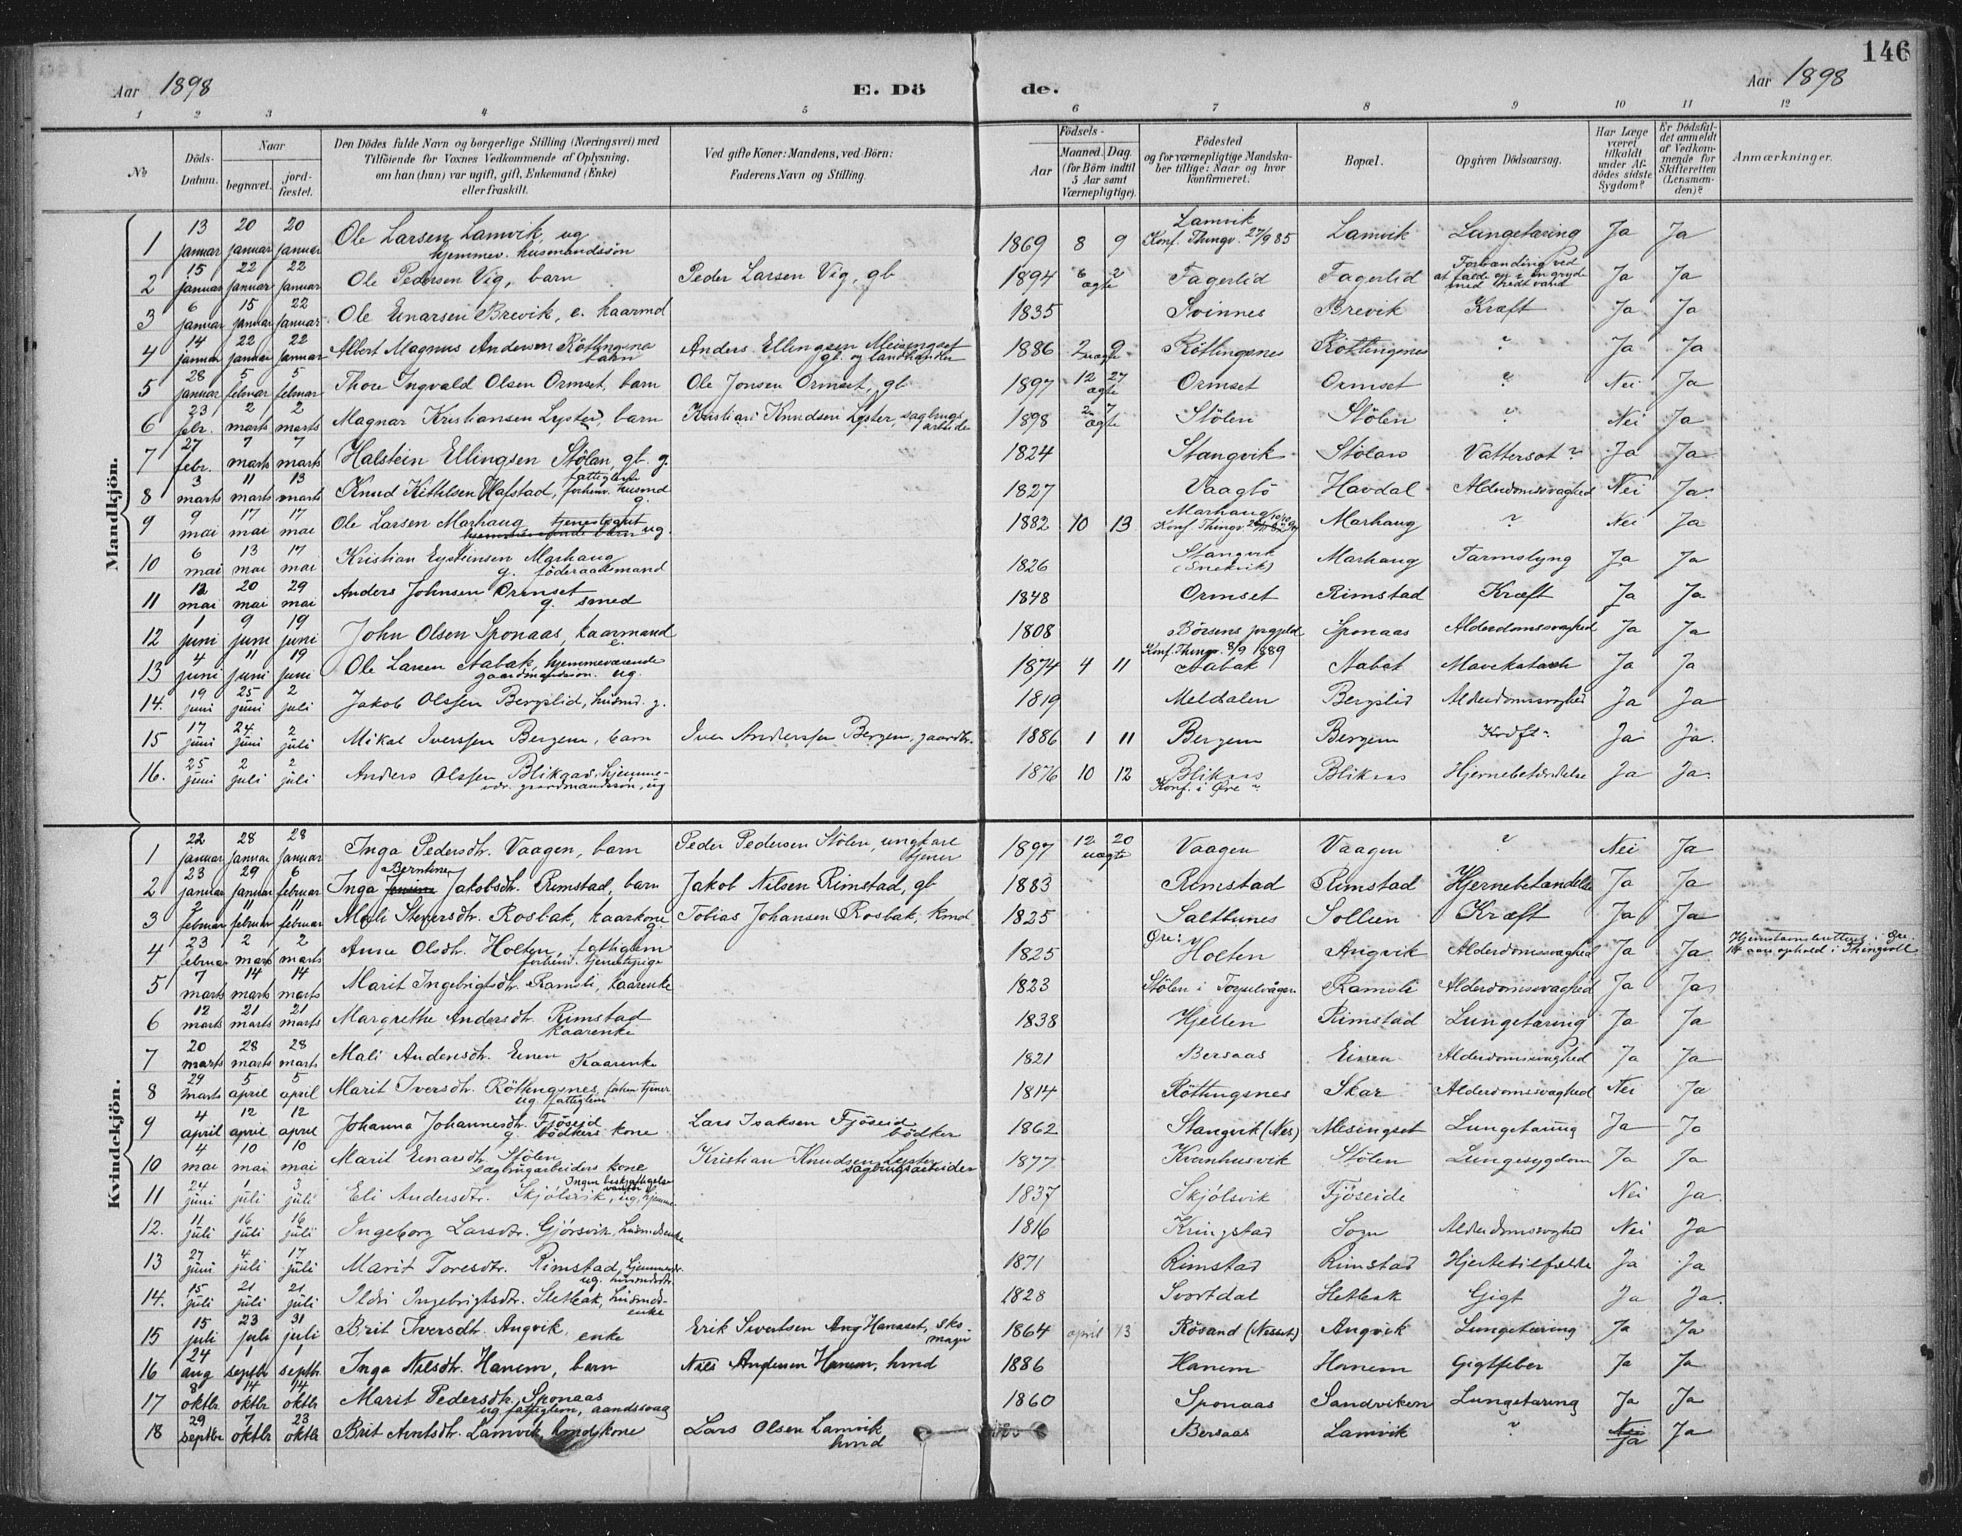 146
Aar 1898 E. Dö de. Aar 1898
1 2 3 4 5 6 7 8 9 10 11 12
№ Döds-Datum. Naar begravet. jordfæstet. Den Dödes fulde Navn og borgerlige Stilling (Næringsvei) med Tilföiende for Voxnes Vedkommende af Oplysning, om han (hun) var ugift, gift, Enkemand (Enke) eller fraskilt. Ved gifte Koner: Mandens, ved Börn: Faderens Navn og Stilling. Födsels- Aar Maaned. Dag. (for Börn indtil 5 Aar samt Værnepligtige). Födested og for værnepligtige Mandskaber tillige: Naar og hvor konfirmeret. Bopæl. Opgiven Dödsaarsag. Har Læge været tilkaldt under Afdödes sidste Sygdom? Er Dödsfaldet anmeldt af Vedkommende for Skifteretten (Lensmanden)? Anmærkninger.
Mandkjön.
1 13 januar 20 januar 20 januar Ole Larsen Lamvik, ug hjemmev. husmandssön 1869 8 9 Lamvik Konf. Thingv. 27/9 85 Lamvik Lungetæring Ja Ja
2 15 januar 22 januar 22 januar Ole Pedersen Vig, barn Peder Larsen Vig, gb 1894 6 2 ægte Fagerlid Fagerlid Forbrænding ved at falde i en gryde med hedt vand Ja Ja
3 6 januar 15 januar 22 januar Ole Enarsen Brevik, e. kaarmd 1835 Svinnes Brevik Kræft Ja Ja
4 14 januar 22 januar 22 januar Albert Magnus Andersen Röttingsnes barn Anders Ellingsen Meisingset gb. og landhandler 1886 2 9 uægte Röttingsnes Röttingsnes ? Ja Ja
5 28 januar 5 februar 5 februar Thore Ingvald Olsen Ormset, barn Ole Jonsen Ormset, gb 1897 12 27 ægte Ormset Ormset ? Nei Ja
6 23 febr. 2 marts 2 marts Magnar Kristiansen Lyster, barn Kristian Knudsen Lyster, sagbrugsarbeider 1898 2 7 ægte Stölen Stölen ? Nei Ja
7 27 febr. 7 marts 7 marts Halstein Ellingsen Stölan, gb. g. 1824 Stangvik Stölan Vattersot ? Ja Ja
8 3 marts 11 marts 13 marts Knud Kittilsen Hafstad, fattiglem forhenv. husmd g. 1827 Vaagbö Havdal Alderdomssvaghed Nei Ja
9 9 mai 17 mai 17 mai Ole Larsen Marhaug tjenestegut ug. 1882 10 13 Marhaug Konf. Thingv. Marhaug ? Nei Ja
10 6 mai 13 mai 17 mai Kristian Eysteinsen Marhaug g. föderaadsmand 1826 Stangvik (Snekvik) Marhaug Tarmslyng Ja Ja
11 12 mai 20 mai 29 mai Anders Johnsen Ormset g. smed 1848 Ormset Rimstad Kræft Ja Ja
12 1 juni 9 juni 19 juni John Olsen Sponaas, kaarmand e. 1808 Börsens prgjeld Sponaas Alderdomssvaghed Ja Ja
13 4 juni 11 juni 19 juni Ole Larsen Aabak, hjemmeværende gaardmandssön. ug. 1874 4 11 Konf. Thingv. 8/9 1889 Aabak Aabak Mavekatarh Ja Ja
14. 19 juni 25 juni 2 juli Jakob Olssen Bergslid, husmd. g. 1819 Meldalen Bergslid Alderdomssvaghed Ja Ja
15 17 juni 24 juni 2 juli Mikal Iverssen Bergem, barn Iver Anderssen Bergem, gaardbr. 1886 1 11 Bergem Bergem Kröft ? Ja Ja.
16. 25 juni 2 juli 2 juli Anders Olssen Bliksas, hjemmevær. gaardmandssön, ug 1876 10 12 Bliksas Konf. i Öre ? Bliksas Hjernebetændelse Ja Ja
Kvindekjön.
1 22 januar 28 januar 28 januar Inga Pedersdtr. Vaagen, barn Peder Pedersen Stölen, ungkarl tjener 1897 12 20 uægte Vaagen Vaagen ? Nei Ja
2 23 januar 29 januar 6 februar Inga Berntine Jakobsdtr. Rimstad, barn Jakob Nilsen Rimstad, gb 1883 Rimstad Rimstad Hjernebetændelse Ja Ja
3 2 februar 11 februar 11 februar Mali Siversdtr. Rosbak, kaarkone g. Tobias Johansen Rosbak, kmd 1825 Saltbunes Sollien Kræft Ja Ja
4 23 februar 2 mars 2 marts Anne Olsdtr. Holten, fattiglem forhenv. tjenestepige 1825 Öre: Holten Angvik Alderdomssvaghed Ja Ja Hjemstavnsberettiget i Öre. aars ophold i Thingvoll
5 7 marts 14 marts 14 marts Marit Ingebrigtsdtr. Ramsli, kaarenke 1823 Stölen i Torjulvågen Ramsli Alderdomssvaghed Ja Ja
6 12 marts 21 marts 21 marts Margrethe Andersdtr. Rimstad kaarenke 1838 Hjellen Rimstad Lungetæring Ja Ja
7 20 marts 28 marts 28 marts Mali Andersdtr. Einen Kaarenke 1821 Bersaas Einen Alderdomssvaghed Ja Ja
8 29 marts 5 april 5 april Marit Iversdtr. Röttingsnes, forhen tjener ug. fattiglem 1814 Röttingsnes Skar Alderdomssvaghed Nei Ja
9 4 april 12 april 12 april Johanna Johannesdtr. Fjöseid g. bödkers kone Lars Isaksen Fjöseid bödker 1862 Stangvik (Nes) Meisingset Lungetæring Ja Ja
10 4 mai 10 mai 10 mai Marit Einarsdtr. Stölen sagbrugarbeiders kone Kristian Knudsen Lyster sagbrugsarbeider 1877 Kvernhusvik Stölen Lungesygdom Ja Ja
11 24 juni 1 juli 3 juli Eli Andersdtr. Skjölsvik, ug, hjemme Ingen beskjæftigelse 1837 Skjölsvik Fjöseide Nei Ja.
12. 11 juli 16 juli 16 juli Ingeborg Larsdtr. Gjörsvik, husmdsenke 1816 Kringstad Sogn Alderdomssvaghed Nei Ja
13 27 juni 4 juli 17 juli Marit Toresdtr. Rimstad, hjemmevær. ug. husmdsdtr. 1871 Rimstad Rimstad Hjertetilfælde Ja Ja
14. 15 juli 21 juli 21 juli Ildri Ingebrigtsdtr. Sletbak, husmds-enke 1828 Svortdal Sletbak Gigt Ja Ja.
15 15 juli 23 juli 31 juli Brit Iversdtr. Angvik, enke Erik Sivertsen Ang Hanaset, skomager 1864 april 13 Rösand (Nesset) Angvik Lungetæring Ja Ja
16 24 aug 1 septbr 1 septbr. Inga Nilsdtr. Hanem, barn Nils Andersen Hanem, hmd 1886 Hanem Hanem Gigtfeber Ja Ja
17 8 oktbr 14 oktbr 14 oktbr Marit Pedersdtr. Sponaas ug fattiglem, aandssvag 1860 Sponaas Sandviken Lungetæring Ja Ja
18 29 septbr 7 oktbr 23 oktbr Brit Arntsdtr. Lamvik, hmdskone Lars Olsen Lamvik hmd Bersaas Lamvik ? Nei Ja Ja